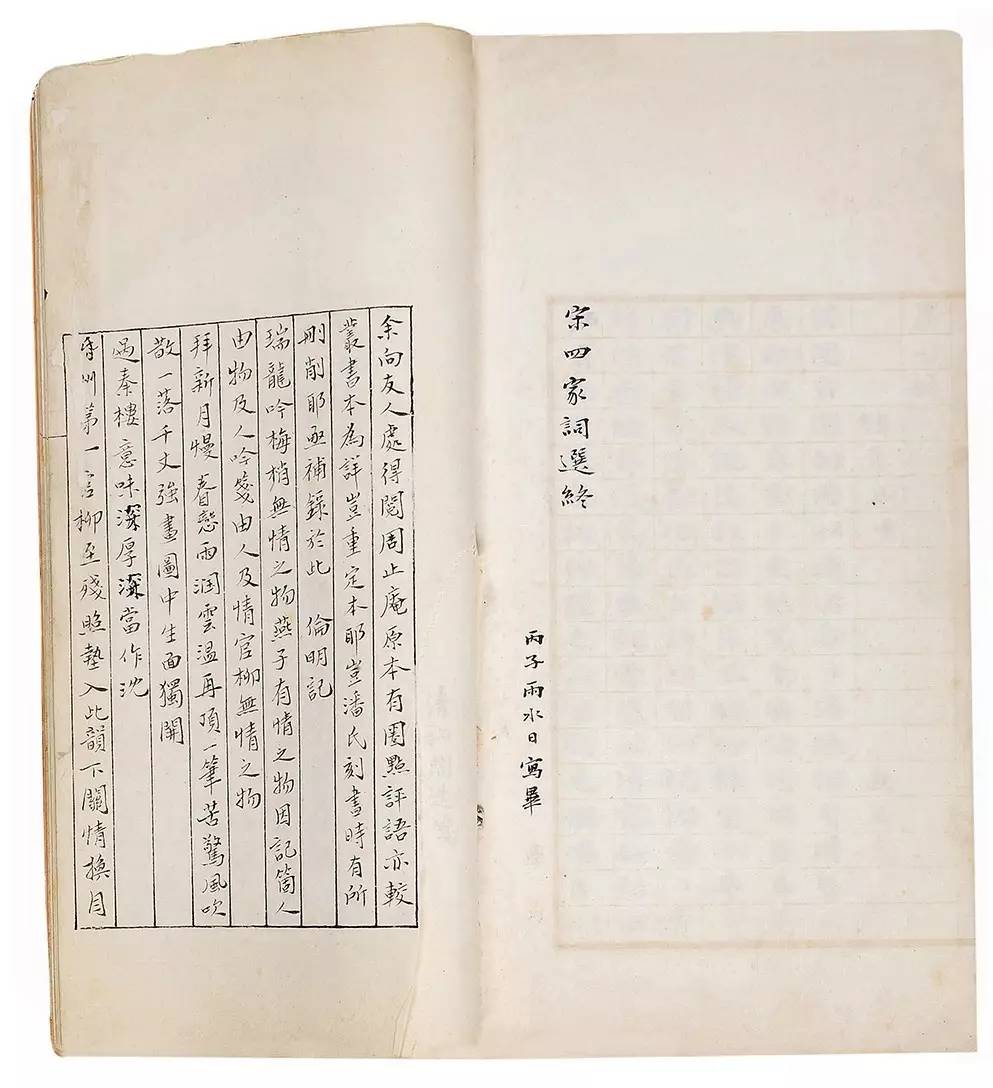 宋四家詞選終
丙子雨水日寫畢
余向友人處得閱周止庵原本有圈點評語亦較
叢書本為詳豈重定本耶豈潘氏刻書時有所
刪削耶亟補錄於此 倫明記
瑞龍吟梅梢無情之物燕子有情之物因記箇人
由物及人吟箋由人及情官柳無情之物
拜新月慢 春戀雨潤雲溫再頂一筆苦驚風吹
散一落千丈強畫圖中生面獨開
過秦樓意味深厚深當作沈
第一言柳至殘照墊入此韻下關情換月